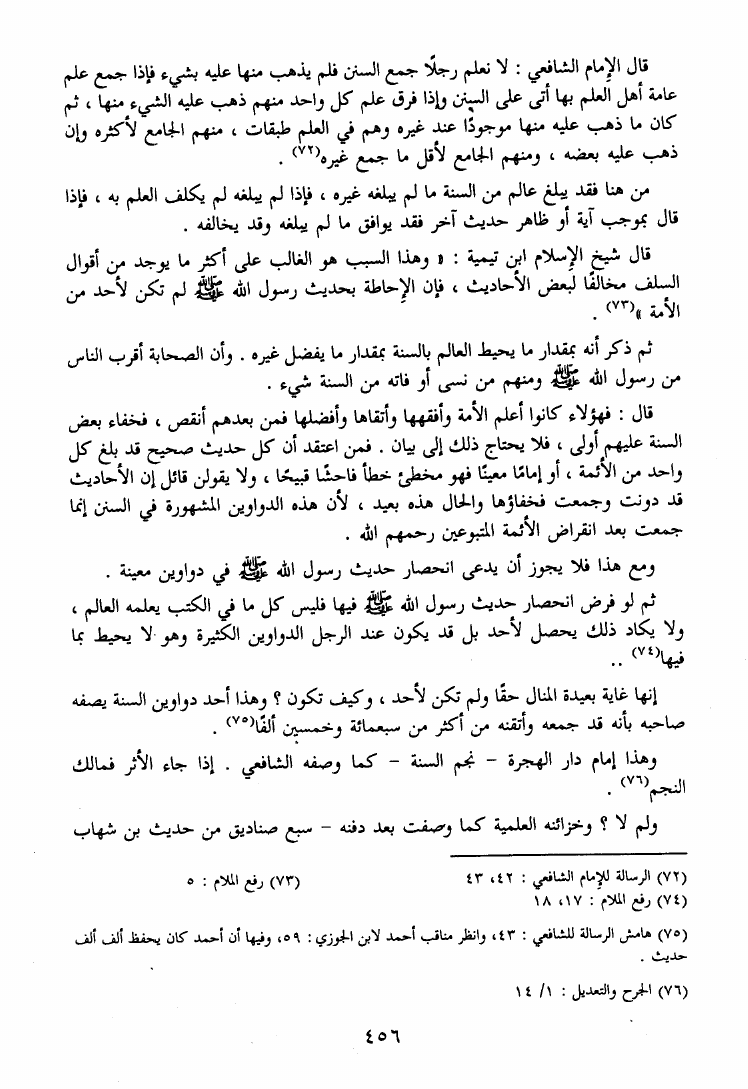 قال الإمام الشافعي : لا نعلم رجلًا جمع السنن فلم يذهب منها عليه بشيء فإذا جمع علم
عامة أهل العلم بها أتى على السنن وإذا فرق علم كل واحد منهم ذهب عليه الشيء منها ، ثم
كان ما ذهب عليه منها موجودًا عند غيره وهم في العلم طبقات ، منهم الجامع لأكثره وإن
ذهب عليه بعضه ، ومنهم الجامع لأقل ما جمع غيره(٧٢) .
من هنا فقد يبلغ عالم من السنة ما لم يبلغه غيره ، فإذا لم يبلغه لم يكلف العلم به ، فإذا
قال بموجب آية أو ظاهر حديث آخر فقد يوافق ما لم يبلغه وقد يخالفه .
قال شيخ الإسلام ابن تيمية : « وهذا السبب هو الغالب على أكثر ما يوجد من أقوال
السلف مخالفًا لبعض الأحاديث ، فإن الإحاطة بحديث رسول الله ﷺ لم تكن لأحد من
الأمة »(٧٣) .
ثم ذكر أنه بمقدار ما يحيط العالم بالسنة بمقدار ما يفضل غيره . وأن الصحابة أقرب الناس
من رسول الله ﷺ ومنهم من نسى أو فاته من السنة شيء .
قال : فهؤلاء كانوا أعلم الأمة وأفقهها وأتقاها وأفضلها فمن بعدهم أنقص ، فخفاء بعض
السنة عليهم أولى ، فلا يحتاج ذلك إلى بيان . فمن اعتقد أن كل حديث صحيح قد بلغ كل
واحد من الأئمة ، أو إمامًا معينًا فهو مخطئ خطأ فاحشًا قبيحًا ، ولا يقولن قائل إن الأحاديث
قد دونت وجمعت فخفاؤها والحال هذه بعيد ، لأن هذه الدواوين المشهورة في السنن إنما
جمعت بعد انقراض الأئمة المتبوعين رحمهم الله .
ومع هذا فلا يجوز أن يدعى انحصار حديث رسول الله ﷺ في دواوين معينة .
ثم لو فرض انحصار حديث رسول الله ﷺ فيها فليس كل ما في الكتب يعلمه العالم ،
ولا يكاد ذلك يحصل لأحد بل قد يكون عند الرجل الدواوين الكثيرة وهو لا يحيط بما
فيها(٧٤) ..
إنها غاية بعيدة المنال حقًا ولم تكن لأحد ، وكيف تكون ؟ وهذا أحد دواوين السنة يصفه
صاحبه بأنه قد جمعه وأتقنه من أكثر من سبعمائة وخمسين ألفًا(٧٥) .
وهذا إمام دار الهجرة - نجم السنة - كما وصفه الشافعي . إذا جاء الأثر فمالك
النجم(٧٦) .
ولم لا ؟ وخزائنه العلمية كما وصفت بعد دفنه - سبع صناديق من حديث بن شهاب
(٧٢) الرسالة للإمام الشافعي : ٤٢، ٤٣ (٧٣) رفع الملام : ٥
(٧٤) رفع الملام : ١٧، ١٨
(٧٥) هامش الرسالة للشافعي : ٤٣، وانظر مناقب أحمد لابن الجوزي : ٥٩، وفيها أن أحمد كان يحفظ ألف ألف
حديث .
(٧٦) الجرح والتعديل : ١/ ١٤
٤٥٦